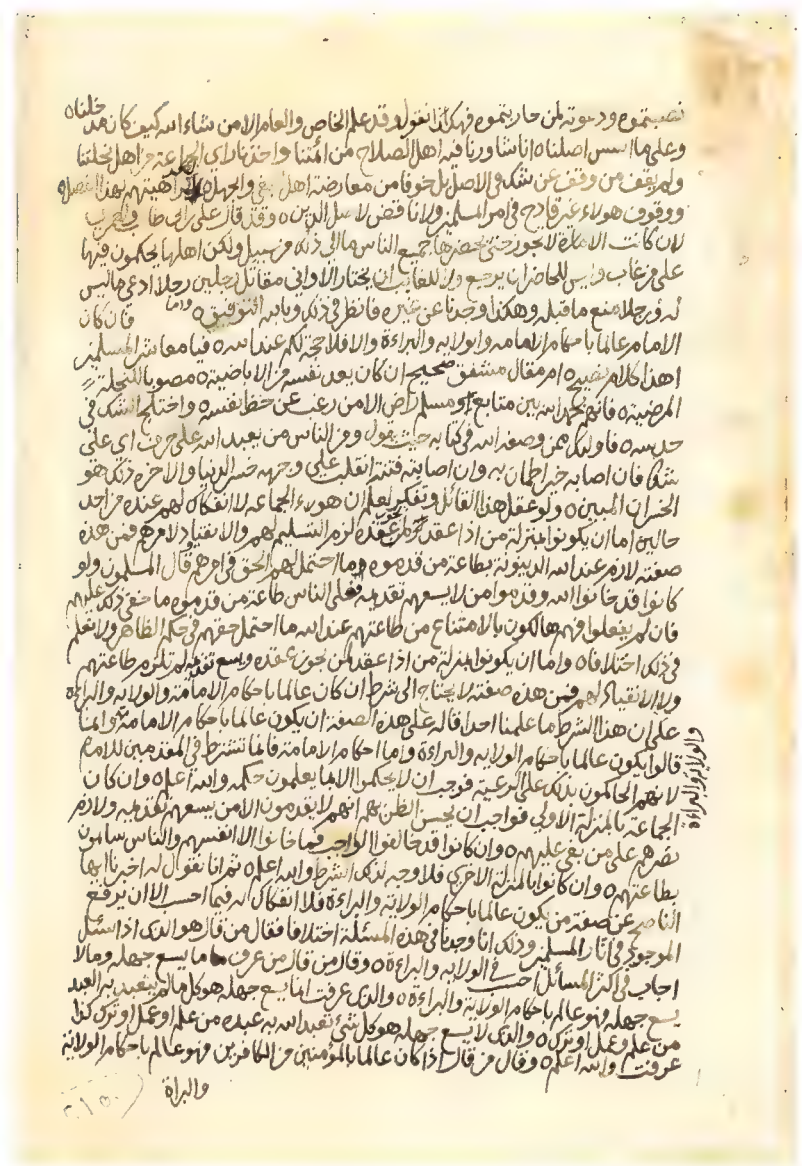 نصبتموه ودعوته لمن حاربتموه فهكذا نقول وقد علم الخاص والعام الا من شاء الله كيف كان مدخلنا ه
وعلى ما اسس اصلنا ه اننا شاورنا فيه اهل الصلاح من ائمتنا واخذنا راي الجماعة من اهل نحلتنا
ولم يقف من وقف عن شك في الاصل بل خوفا من معارضة اهل بغي والجهل ه لكراهيتهم بهذا الفصل ه
ووقوف هولاء غير قادح في امر المسلمين ولا ناقض لاصل الدين ه وقد قال علي بن ابي طالب
لان كانت الامارة لا تجوز حتى يحضرها جميع الناس ما الى ذلك من سبيل ولكن اهلها يحكمون فيها
على من غاب وليس للحاضر ان يرجع ولا للغائب ان يختار الا واني مقاتل رجلين رجلا ادعى ما ليس
له ورجلا منع ما قبله وهكذا وجدنا عن غيره فانظر في ذلك وبالله التوفيق ه واما فان كان
الامام عالما باحكام الامامه والولايه والبراءة والا فلا حجة لكم عند الله ه فيا معاشر المسلمين
اهذا كلام نصيح ه ام مقال مشفق صحيح ان كان يعد نفسه من الاباضية ه مصوبا للنحلة
المرضية ه فانهم بحمد الله بين متابع ومسلم راض الا من رغب عن حظ نفسه ه واختلج الشك في
حدسه ه فاولئك ممن وصفه الله في كتابه حيث يقول ومن الناس من يعبد الله على حرف اي على
شك فان اصابه خير اطمان به وان اصابته فتنة انقلب على وجهه خسر الدنيا والاخره ذلك هو
الخسران المبين ه ولو عقل هذا القائل وتفكر لعلم ان هولاء الجماعه لا انفكاك لهم عنده من احد
حالين اما ان يكونوا بمنزلة من اذا عقد لمن يجوز عقده لزم التسليم لهم والانقياد لامرهم فمن هذه
صفته لازم عند الله الدينونة بطاعة من قدموه وما احتمل لهم الحق في امرهم قال المسلمون ولو
كانوا قد خانوا الله وقدموا من لا يسعهم تقديمه فعلى الناس طاعة من قدموه ما خفي ذلك عليهم
فان لم يفعلوا فهم هالكون بالامتناع من طاعتهم عند الله ما احتمل حقهم في حكم الظاهر ولا نعلم
في ذلك اختلافا ه واما ان يكونوا بمنزلة من اذا عقد لمن يجوز عقده ويسع تقديمه لم تلزم طاعتهم
ولا الانقياد لهم فمن هذه صفته لا يحتاج الى شرط ان كان عالما باحكام الامامة والولايه والبراءة
على ان هذا الشرط ما علمنا احدا قاله على هذه الصفة ان يكون عالما باحكام الامامة وانما
والولاية والبراءة
قالوا يكون عالما باحكام الولايه والبراءة واما احكام الامامة فانما تشترط في المقدمين للامام
لانهم الحاكمون بذلك على الرعية فوجب ان لا يحكموا الا بما يعلمون حكمه والله اعلم ه وان كان
الجماعة بالمنزلة الاولى فواجب ان يحسن الظن بهم انهم لا يقدمون الا من يسعهم تقديمه ولازم
نصرهم على من بغى عليهم ه وان كانوا قد خالفوا الواجب فما خانوا الا انفسهم والناس سالمون
بطاعتهم ه وان كانوا بالمنزلة الاخرى فلا وجه لذلك الشرط والله اعلم ه ثم انا نقول له اخبرنا ايها
الناصح عن صفة من يكون عالما باحكام الولايه والبراءة فلا انفكاك له فيما احسب الا ان يرفع
الموجود في اثار المسلمين وذلك انا وجدنا في هذه المسئلة اختلافا فقال من قال هو الذي اذا سئل
اجاب في اكثر المسائل احسب في الولايه والبراءة ه وقال من قال من عرف ما يسع جهله وما لا
يسع جهله فهو عالم باحكام الولاية والبراءة ه والذي عرفت انما يسع جهله هو كل ما لم يتعبد به العبد
من علم وعمل او ترك ه والذي لا يسع جهله هو كل شيء تعبد الله به عبده من علم او عمل او ترك كذا
عرفت والله اعلم ه وقال من قال اذا كان عالما بالمؤمنين من الكافرين فهو عالم باحكام الولاية
والبراة